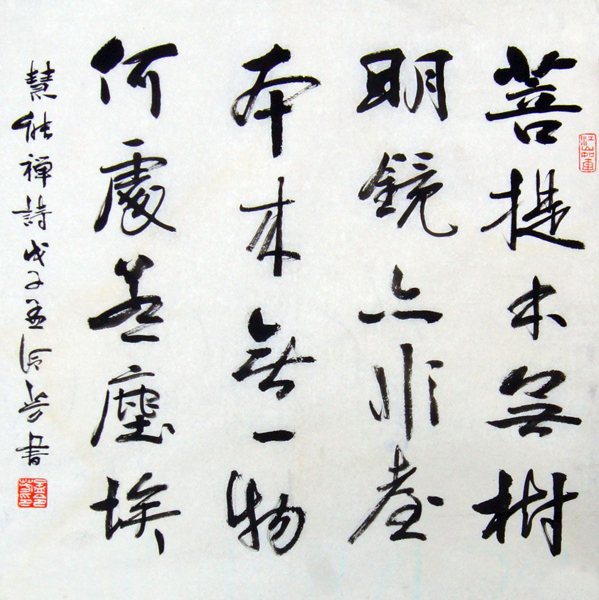 菩提本無樹
明鏡亦非臺
本來無一物
何處惹塵埃
慧能禪詩戊子書